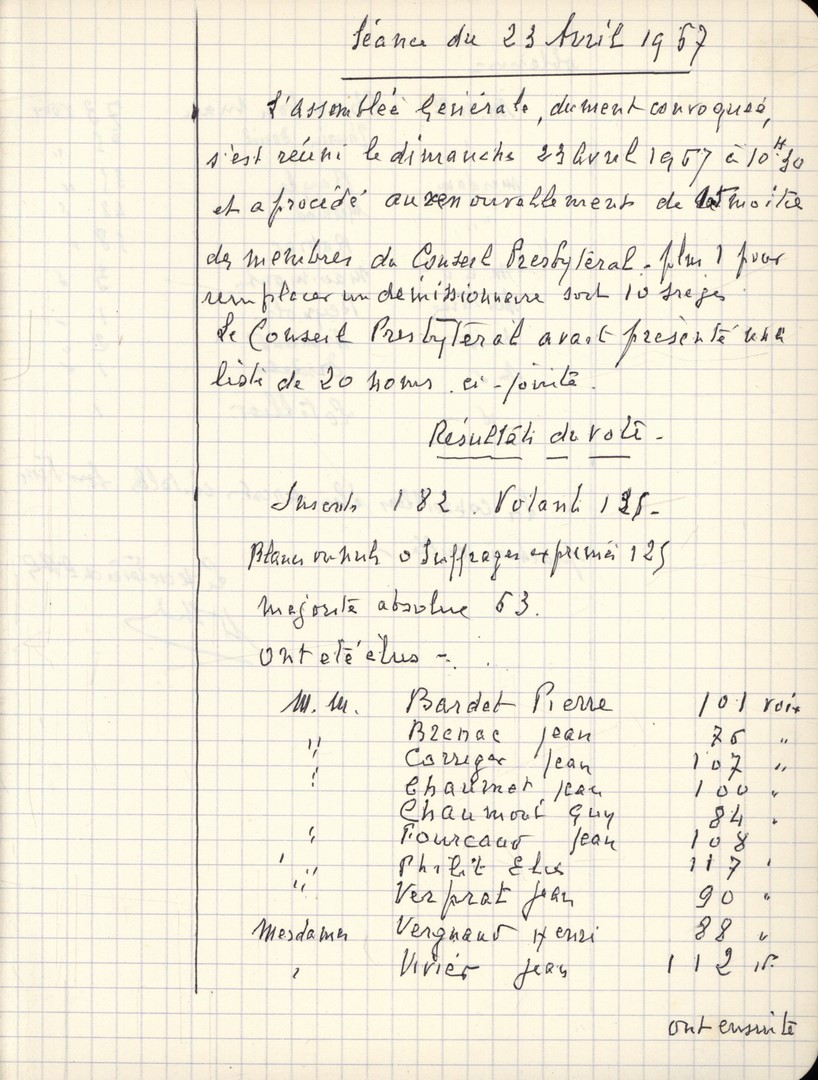 Séance du 23 Avril 1967
L'Assemblée Générale, dument convoquée,
s'est réuni le dimanche 23 Avril 1967 à 10H30
et a procédé au renouvellement de la moitié
des membres du Conseil Presbytéral - plus 1 pour
remplacer un démissionnaire soit 10 sièges
Le Conseil Presbytéral avait présenté une
liste de 20 noms. ci-jointe.
Résultats du vote -
Inscrits 182. Votants 125-
Blancs ou nuls 0 Suffrages exprimés 125
majorité absolue 63.
ont été élus -.
M.M. Bardet Pierre 101 voix
Brenac Jean 76 "
" Carrega Jean 107 "
" Chaumet Jean 100 "
Chaumont Guy 84 "
" Fourcaud Jean 108
" Philit Elie 117 "
" Verprat Jean 90 "
Mesdames Vergnaud Henri 88 "
" Vivier Jean 112 v.
ont ensuite